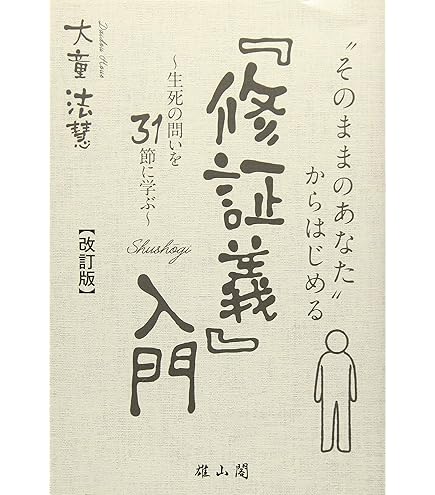 “そのままのあなた”
からはじめる
『修証義』
入門
Shushogi
～生死の問いを
31節に学ぶ～
【改訂版】
Daidou Houe
大童法慧
雄山閣